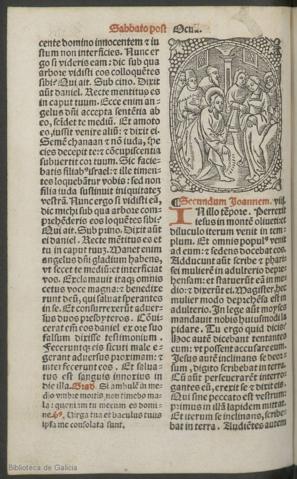 Sabbato post Ocu.
cente domino innocentem & iu
stum non interficies. Nunc er
go si videris eam: dic sub qua
arbore vidisti eos colloquētes
sibi. Qui ait. Sub cino. Dixit
aūt daniel. Recte mentitus es
in caput tuum. Ecce enim an
gelus dñi accepta sentētia ab
eo, scīdet te mediū. Et amoto
eo, iussit venire aliū: & dixit ei.
Semē chanaan & nō iuda, spe
cies decepit te: & cōcupiscentia
subuertit cor tuum. Sic facie
batis filiab9 israel: & ille timen
tes loquebātur vobis: sed non
filia iuda sustinuit iniquitatez
vestrā. Nunc ergo si vidisti eā,
dic michi sub qua arbore com
prehēderis eos loquētes sibi.
Qui ait. Sub prino. Dixit aūt
ei daniel. Recte mētitus es et
tu in caput tuuz. Manet enim
angelus dñi gladium habens,
vt secet te mediū: et interficiat
vos. Exclamauit itaq3 omnis
cetus voce magna: & benedixe
runt deū, qui saluat sperantes
in se. Et consurrexerūt aduer
sus duos presbyteros. Cōui
cerat em̄ eos daniel ex ore suo
falsum dixisse testimonium.
Feceruntq3 eis sicut male e
gerant aduersus proximum: &
interfecerunt eos. Et salua
tus est sanguis innoxius in
die illa. Grad. Si ambulē in me
dio vmbre mortis, non timebo ma
la: quoniam tu mecum es domi
ne. Virga tua et baculus tuus
ipsa me consolata sunt.
Secundum Joannem. viij.
IN illo tēpore. Perrexit
iesus in montē oliueti: et
diluculo iterum venit in tem
plum. Et omnis popul9 venit
ad eum: & sedens docebat eos.
Adducunt aūt scribe & phari
sei mulierē in adulterio depre
hensam: et statuerūt eā in me
dio: & dixerūt ei. Magister, hec
mulier modo deprehēsa est in
adulterio. In lege aūt moyses
mandauit nobis huiusmodi la
pidare. Tu ergo quid dicis?
Hoc autē dicebant tentantes
eum: vt possent accusare eum.
Jesus autē inclinans se deor
sum, digito scribebat in terra.
Cū aūt perseuerarēt interro
gantes eū, erexit se & dixit eis.
Qui sine peccato est vestrum:
primus in illā lapidem mittat.
Et iterum se inclinans, scribe
bat in terra. Audiētes autem
Biblioteca de Galicia